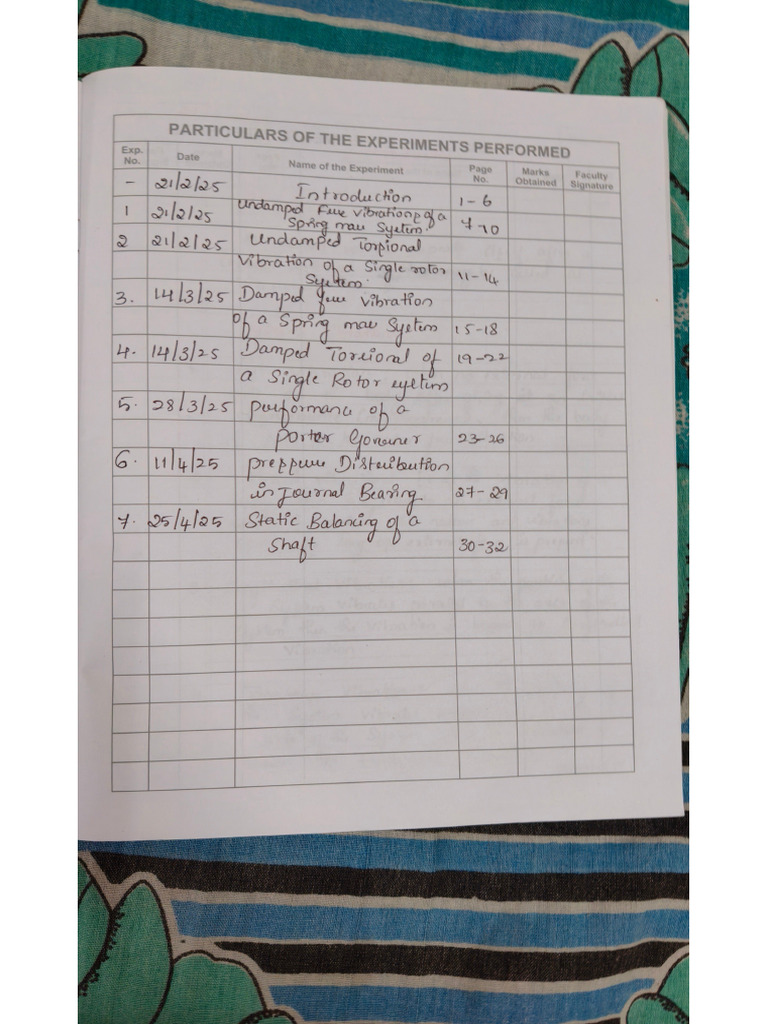 PARTICULARS OF THE EXPERIMENTS PERFORMED
Exp. No. Date Name of the Experiment Page No. Marks Obtained Faculty Signature
- 21/2/25 Introduction 1-6
1 21/2/25 Undamped Free Vibrations of a
Spring mass System. 7-10
2 21/2/25 Undamped Torsional
Vibration of a Single rotor 11-14
System.
3. 14/3/25 Damped free Vibration
of a Spring mass System 15-18
4. 14/3/25 Damped Torsional of 19-22
a Single Rotor system
5. 28/3/25 performance of a
Porter Governer 23-26
6. 11/4/25 pressure Distribution
in Journal Bearing 27-29
7. 25/4/25 Static Balancing of a
Shaft 30-32